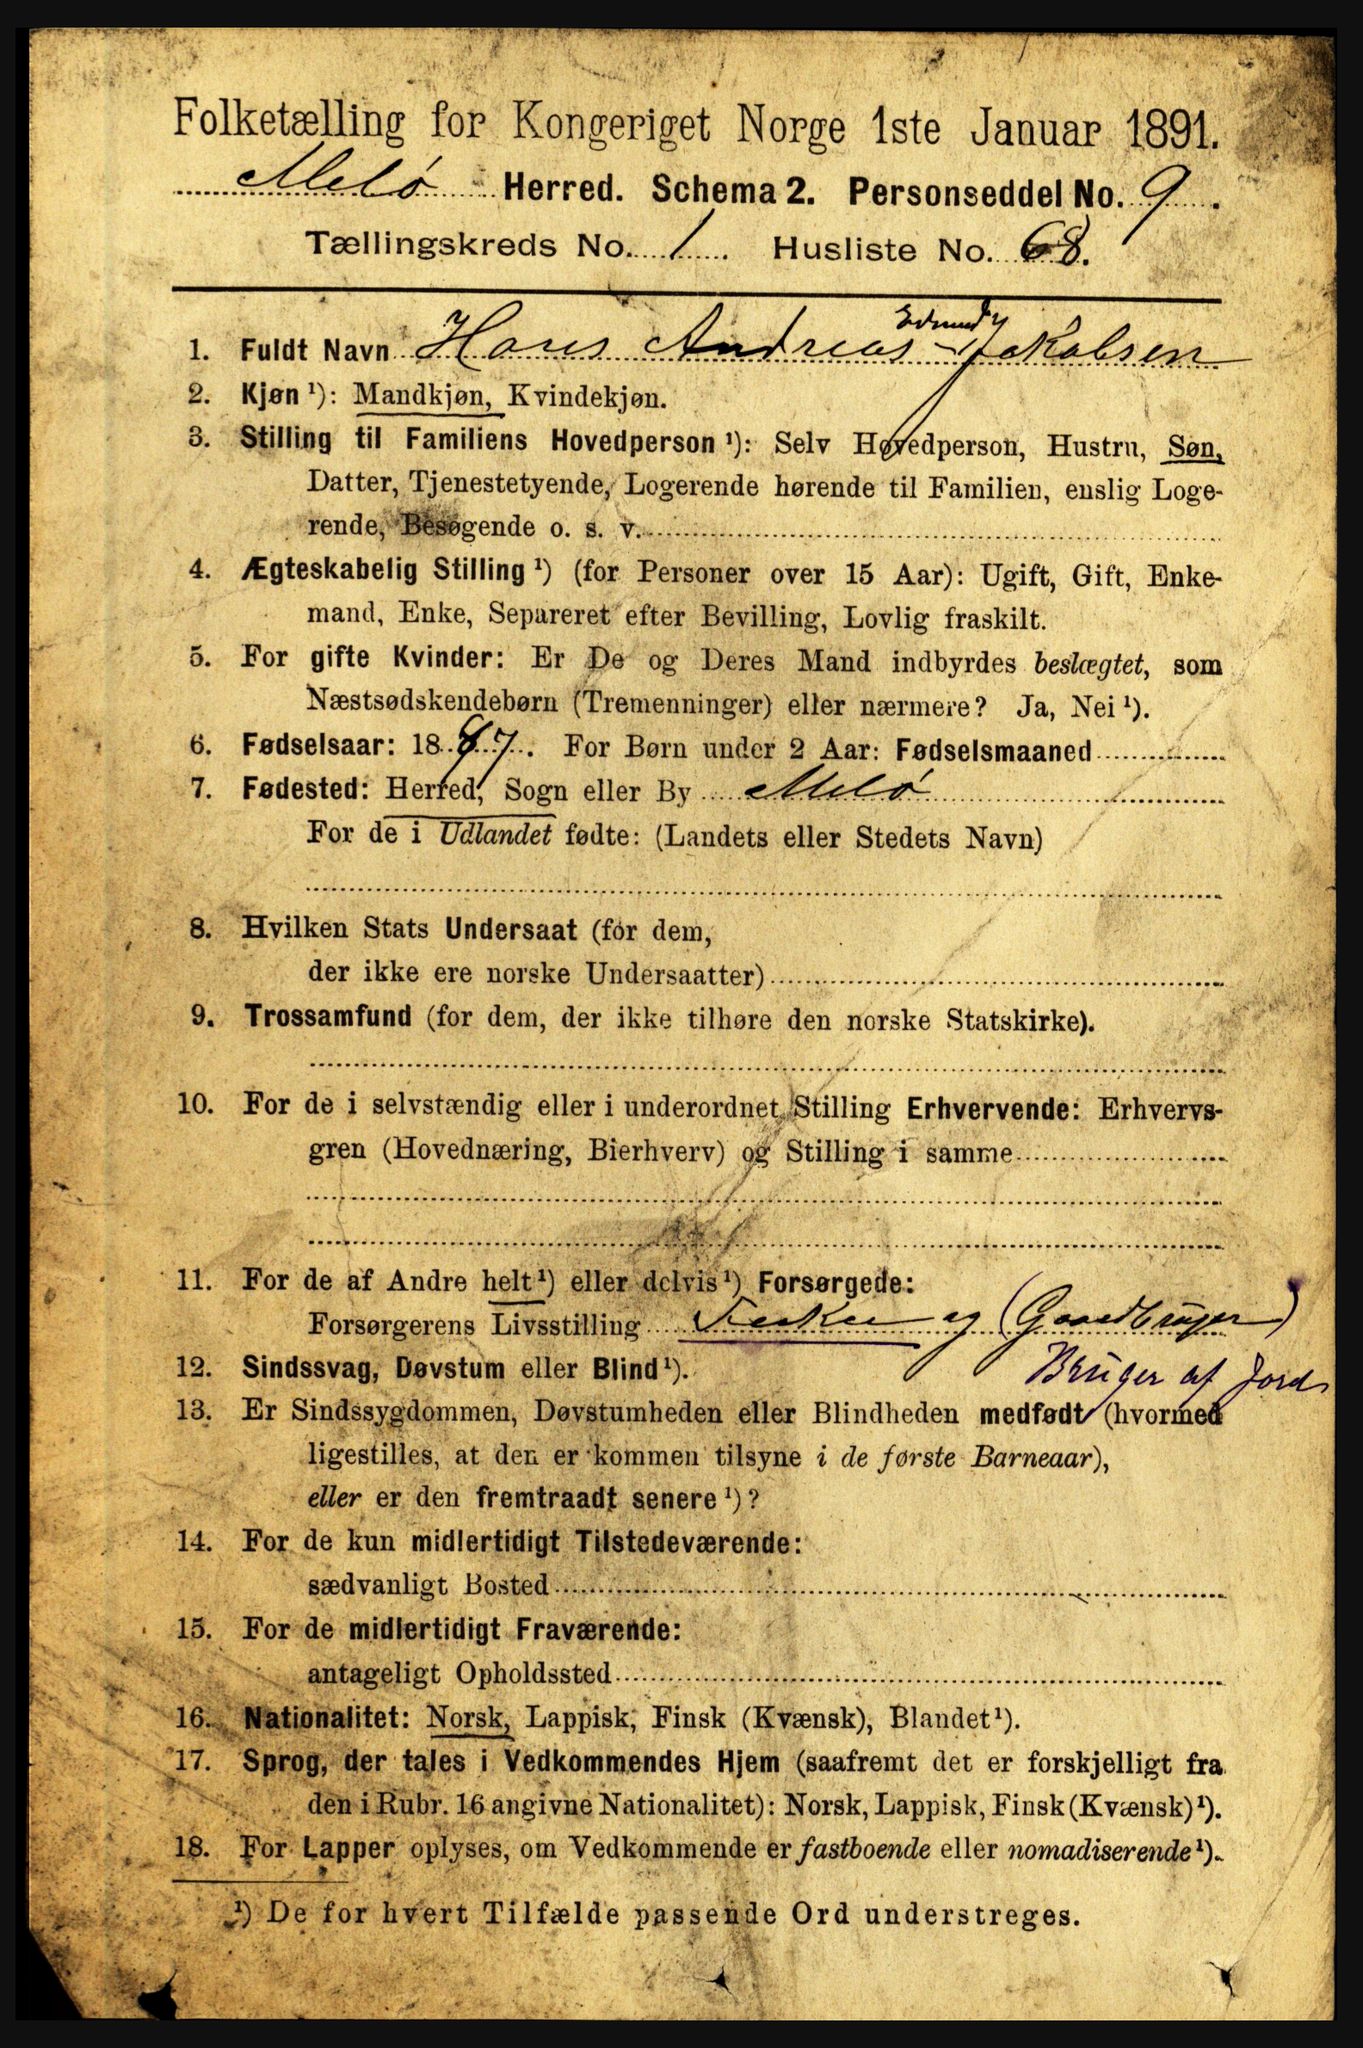 Folketælling for Kongeriget Norge 1ste Januar 1891.
Melø Herred. Schema 2. Personseddel No. 9.
Tællingskreds No. 1. Husliste No. 68.
Edmund
1. Fuldt Navn Hans Andreas Jakobsen
2. Kjøn ¹): Mandkjøn, Kvindekjøn.
3. Stilling til Familiens Hovedperson ¹): Selv Hovedperson, Hustru, Søn,
Datter, Tjenestetyende, Logerende hørende til Familien, enslig Loge-
rende, Besøgende o. s. v.
4. Ægteskabelig Stilling ¹) (for Personer over 15 Aar): Ugift, Gift, Enke-
mand, Enke, Separeret efter Bevilling, Lovlig fraskilt.
5. For gifte Kvinder: Er De og Deres Mand indbyrdes beslægtet, som
Næstsødskendebørn (Tremenninger) eller nærmere? Ja, Nei ¹).
6. Fødselsaar: 1887. For Børn under 2 Aar: Fødselsmaaned
7. Fødested: Herred, Sogn eller By Melø
For de i Udlandet fødte: (Landets eller Stedets Navn)
8. Hvilken Stats Undersaat (for dem,
der ikke ere norske Undersaatter)
9. Trossamfund (for dem, der ikke tilhøre den norske Statskirke).
10. For de i selvstændig eller i underordnet Stilling Erhvervende: Erhvervs-
gren (Hovednæring, Bierhverv) og Stilling i samme
11. For de af Andre helt ¹) eller delvis ¹) Forsørgede:
Forsørgerens Livsstilling Fisker og (Gaardbruger)
12. Sindssvag, Døvstum eller Blind ¹).
Bruger af Jord
13. Er Sindssygdommen, Døvstumheden eller Blindheden medfødt (hvormed
ligestilles, at den er kommen tilsyne i de første Barneaar),
eller er den fremtraadt senere ¹)?
14. For de kun midlertidigt Tilstedeværende:
sædvanligt Bosted
15. For de midlertidigt Fraværende:
antageligt Opholdssted
16. Nationalitet: Norsk, Lappisk, Finsk (Kvænsk), Blandet ¹).
17. Sprog, der tales i Vedkommendes Hjem (saafremt det er forskjelligt fra
den i Rubr. 16 angivne Nationalitet): Norsk, Lappisk, Finsk (Kvænsk) ¹).
18. For Lapper oplyses, om Vedkommende er fastboende eller nomadiserende ¹).
¹) De for hvert Tilfælde passende Ord understreges.